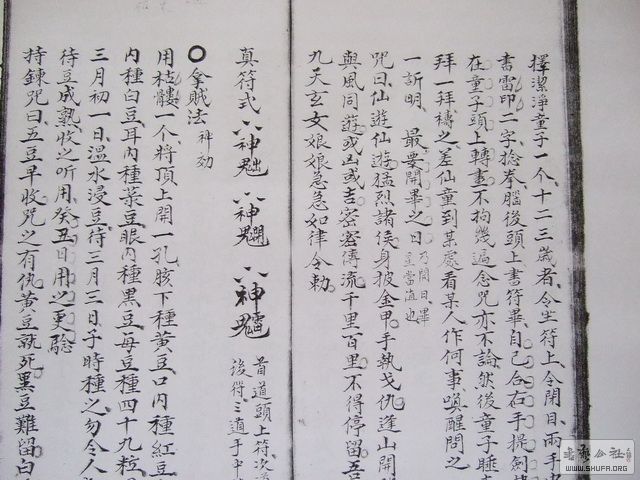 擇潔淨童子一个十二三歲者令坐符上令閉目兩手
書雷印二字捻拳腦後頭上書符畢自己合右手提劍
在童子頭上轉畫不拘幾遍念咒亦不論然後童子睡
拜一拜禱之差仙童到某處看某人作何事喚醒問之
一訴明 最要開畢之日 乃開日畢 當值也
咒曰仙遊仙遊猛烈諸侯身披金甲手執戈仇逢山開
與風同遊或凶或吉密密傳流千里百里不得停留吾
九天玄女娘娘急急如律令勅
真符式 八神 八神 八神 首道頭上符次道 後得三道于中
拿賊法 神効
用枯髏一个將頂上開一孔胲下種黃豆口內種紅豆
內種白豆耳內種菉豆眼內種黑豆每豆種四十九粒
三月初一日溫水浸豆待三月三日子時種之勿令人
待豆成熟收之听用癸丑日用之更驗
持鍊咒曰五豆早收咒之有仇黃豆就死黑豆難留白
書藝公社
WWW.SHUFA.ORG